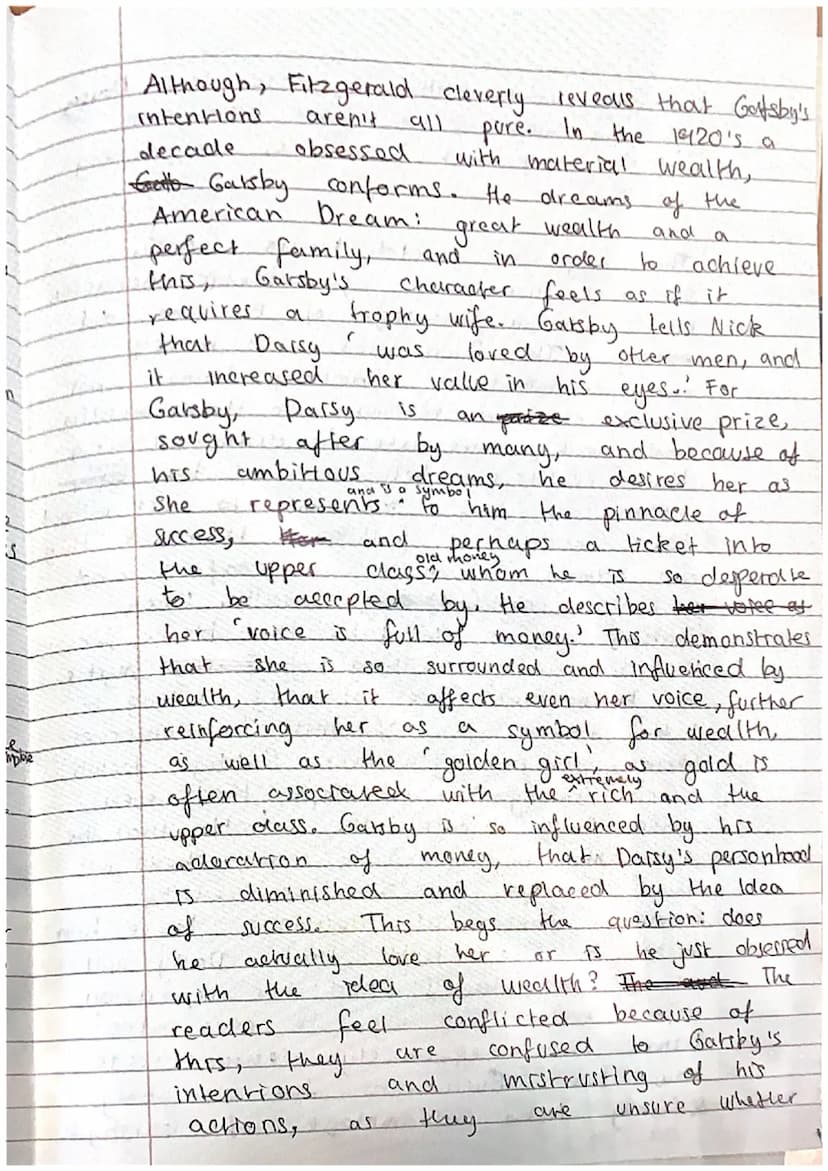 Although, Fitzgerald cleverly reveals that Gatsby's
intentions aren't all pure. In the 1920's a
decade obsessed with material wealth,
Gatsby conforms. He dreams of the
American Dream: great wealth and a
perfect family, and in order to achieve
this, Gatsby's character feels as if it
requires a trophy wife. Gatsby tells Nick
that Daisy 'was loved by other men, and
it increased her value in his eyes.' For
Gatsby, Daisy is an prize exclusive prize,
sought after by many, and because of
his ambitious dreams, he desires her as
and is a symbol
she represents to him the pinnacle of
success, and perhaps a ticket into
old money
the upper class, whom he is so desperate
to be accepted by. He describes her voice as
her 'voice is full of money.' This demonstrates
that she is so surrounded and influenced by
wealth, that it affects even her voice, further
reinforcing her as a symbol for wealth,
as well as the 'golden girl', as gold is
extremely
often associated with the rich and the
upper class. Gatsby is so influenced by his
adoration of money, that Daisy's personhood
is diminished and replaced by the idea
of success. This begs the question: does
he actually love her or is he just obsessed
with the idea of wealth? The
readers feel conflicted because of
this, they are confused to Gatsby's
intentions and mistrusting of his
actions, as they are unsure whether